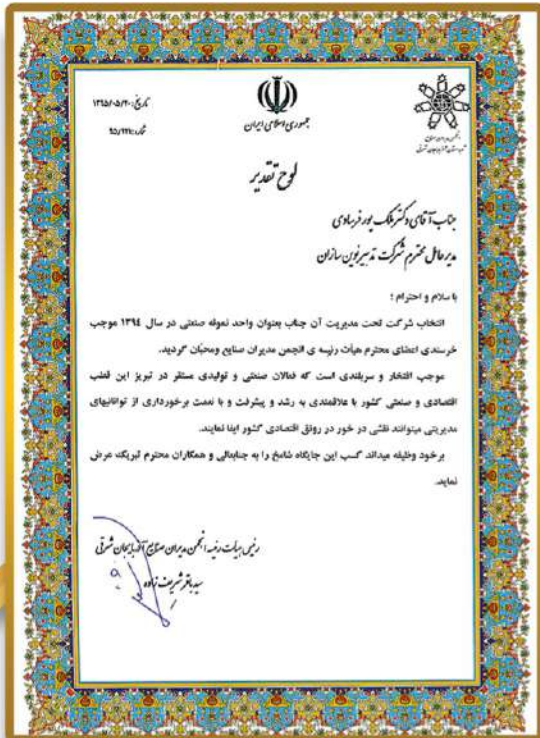 تاریخ: ۱۳۹۵/۰۵/۲۰
جمهوری اسلامی ایران
انجمن مدیران صنایع
لوح تقدیر
جناب آقای دکتر ملک پور فرسادی
مدیرعامل محترم شرکت تدبیر نوین سازان
با سلام و احترام ؛
انتخاب شرکت تحت مدیریت آن جناب بعنوان واحد نمونه صنعتی در سال ۱۳۹٤ موجب
خرسندی اعضای محترم هیأت رئیسه ی انجمن مدیران صنایع ومحبّان گردید.
موجب افتخار و سربلندی است که فعالان صنعتی و تولیدی مستقر در تبریز این قطب
اقتصادی و صنعتی کشور با علاقمندی به رشد و پیشرفت و با نعمت برخورداری از توانائیهای
مدیریتی میتوانند نقشی در خور در رونق اقتصادی کشور ایفا نمایند.
بر خود وظیفه میداند کسب این جایگاه شامخ را به جنابعالی و همکاران محترم تبریک عرض
نماید.
رئیس هیأت رئیسه انجمن مدیران صنایع آذربایجان شرقی
سید باقر شریف زاده